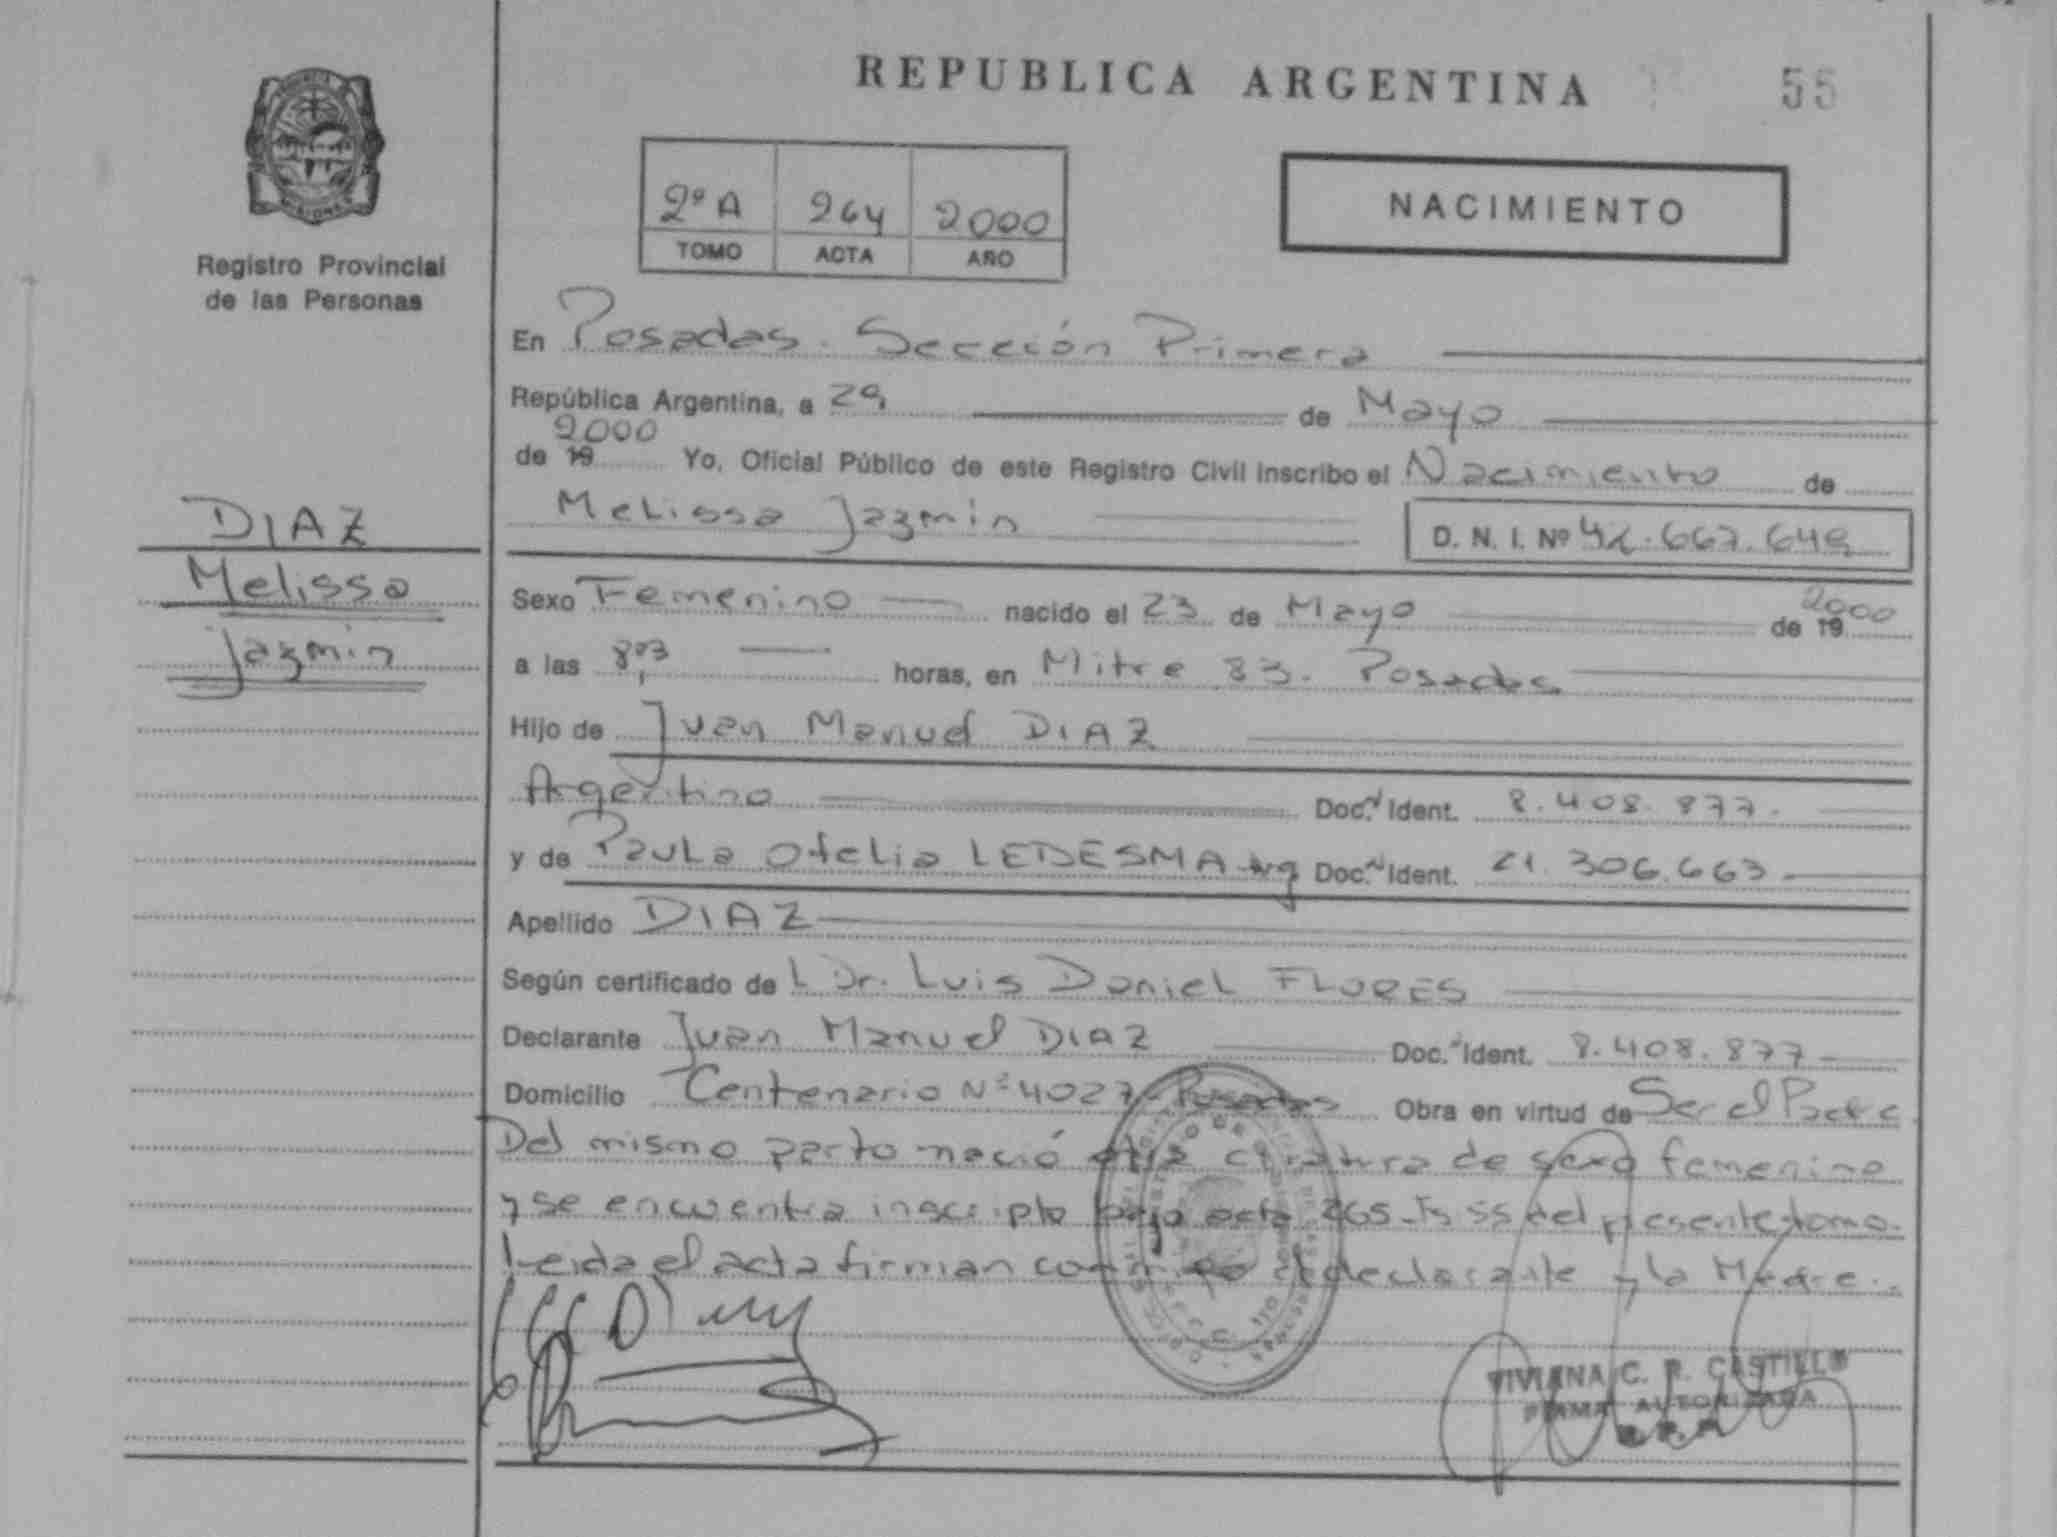 REPUBLICA ARGENTINA 55
MISIONES
Registro Provincial
de las Personas
2º A 264 2000
TOMO ACTA AÑO
NACIMIENTO
En Posadas. Sección Primera
República Argentina, a 29 de Mayo
2000
de 19 Yo, Oficial Público de este Registro Civil inscribo el Nacimiento de
Melissa Jazmín
D. N. I. Nº 42.667.649
DIAZ
Melissa
Jazmin
Sexo Femenino nacido el 23 de Mayo de 19 2000
a las 8,03 horas, en Mitre 83. Posadas
Hijo de Juan Manuel DIAZ
Argentino Doc. Ident. 8.408.877.
y de Paula Ofelia LEDESMA Arg Doc. Ident. 21.306.663
Apellido DIAZ
Según certificado de L Dr. Luis Daniel FLORES
Declarante Juan Manuel DIAZ Doc. Ident. 8.408.877
Domicilio Centenario Nº 4027 Posadas Obra en virtud de Ser el Padre
Del mismo parto nació otra criatura de sexo femenino
y se encuentra inscripta bajo acta 265 Fs 55 del presente tomo.
Leida el acta firman conmigo el declarante y la Madre.
VIVIANA C. R. CASTILLO
FIRMA AUTORIZADA